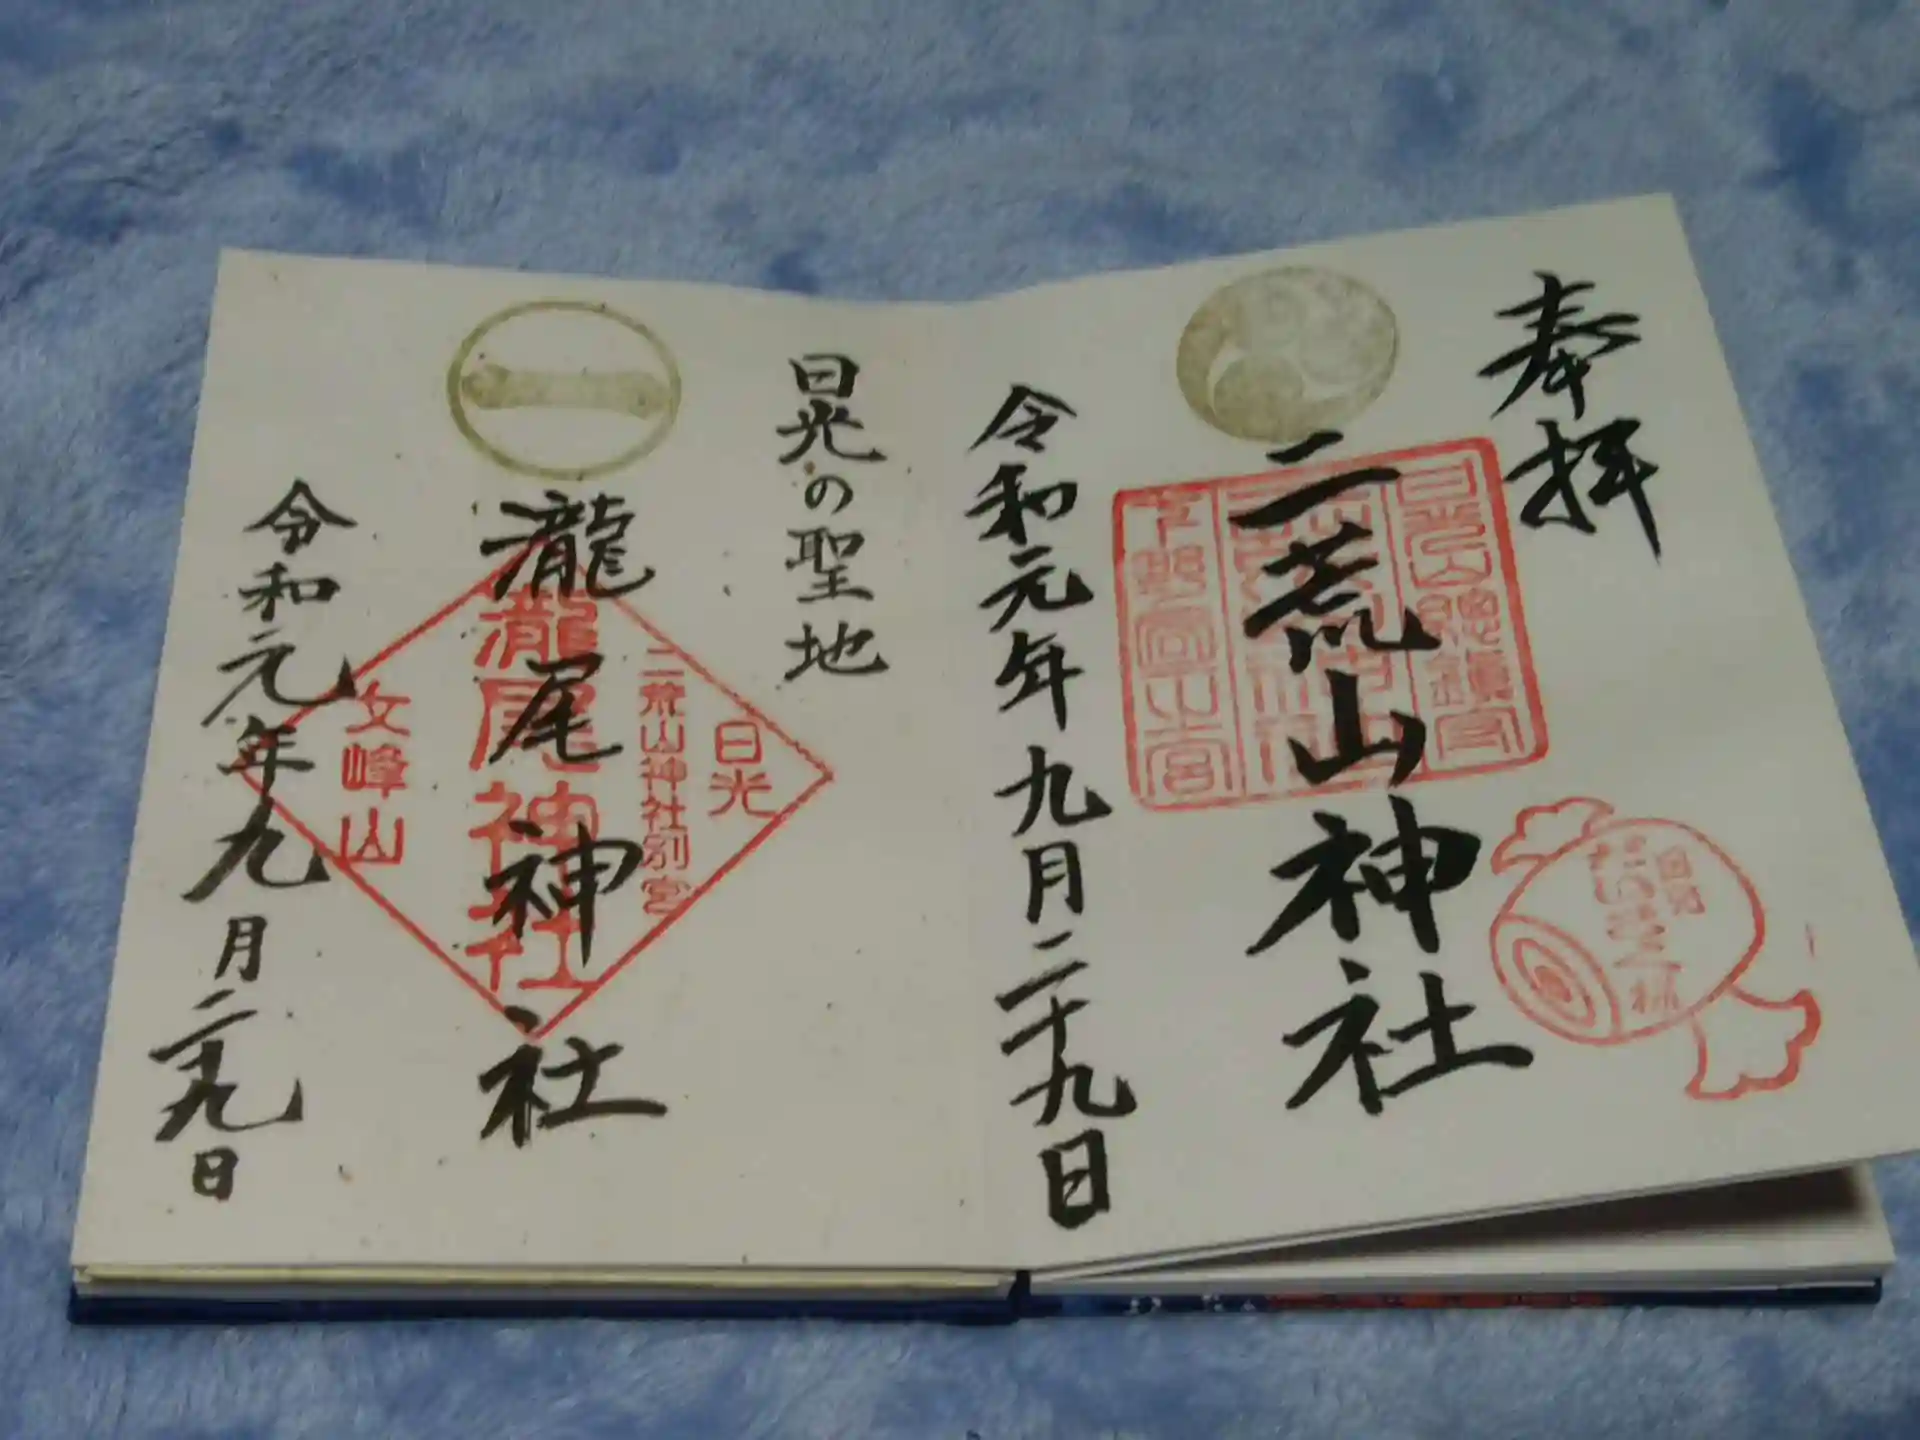 奉拝
二荒山神社
令和元年九月二十九日
日光
だいこく様
日光の聖地
瀧尾神社
令和元年九月二十九日
日光
二荒山神社別宮
瀧尾神社
文峰山